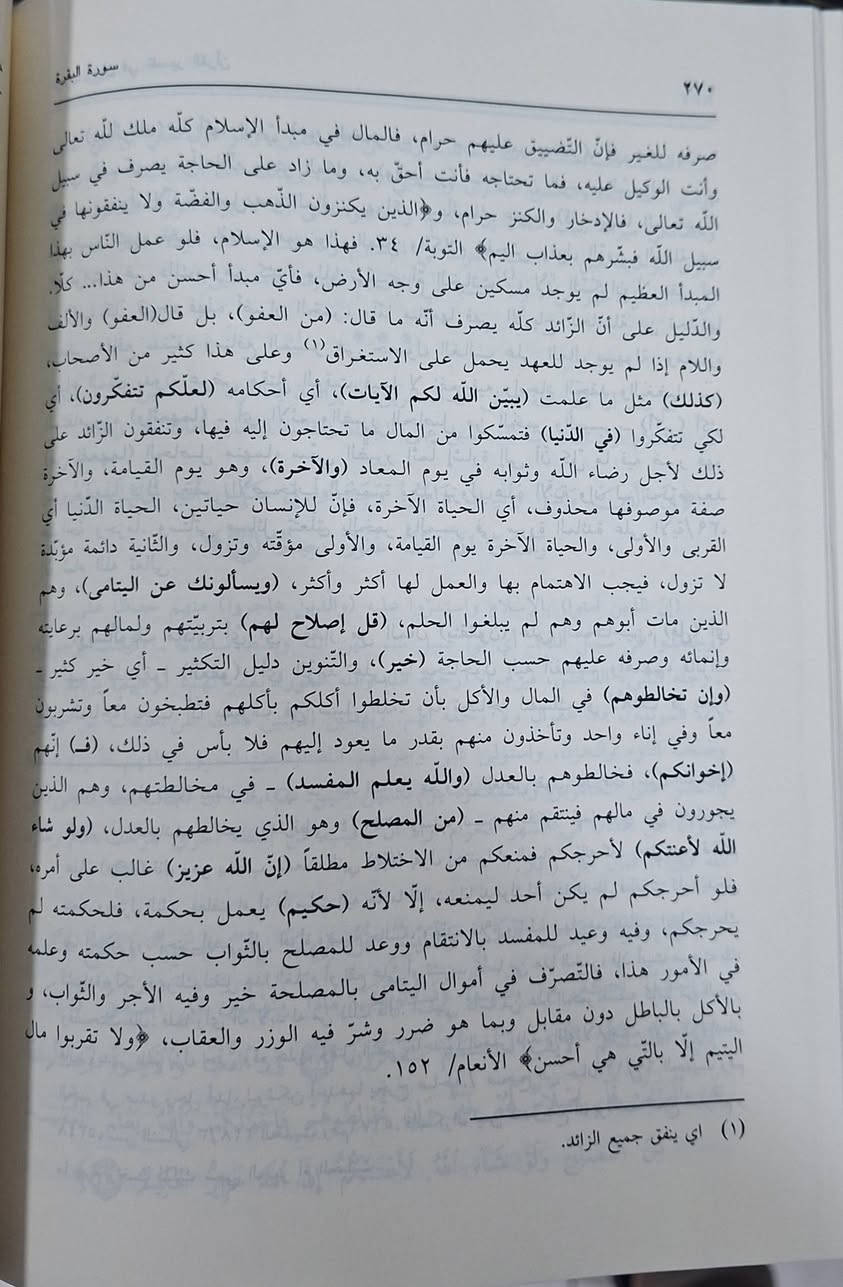 ٢٧٠
سورة البقرة
صرفه للغير فإنّ التّضييق عليهم حرام، فالمال في مبدأ الإسلام كلّه ملك للّه تعالى
وأنت الوكيل عليه، فما تحتاجه فأنت أحقّ به، وما زاد على الحاجة يصرف في سبيل
اللّه تعالى، فالإدخار والكنز حرام، و﴿الذين يكنزون الذّهب والفضّة ولا ينفقونها في
سبيل اللّه فبشّرهم بعذاب اليم﴾ التوبة/ ٣٤. فهذا هو الإسلام، فلو عمل النّاس بهذا
المبدأ العظيم لم يوجد مسكين على وجه الأرض، فأيّ مبدأ أحسن من هذا... كلّا.
والدّليل على أنّ الزّائد كلّه يصرف أنّه ما قال: (من العفو)، بل قال(العفو) والألف
واللام إذا لم يوجد للعهد يحمل على الاستغراق(١) وعلى هذا كثير من الأصحاب،
(كذلك) مثل ما علمت (يبيّن اللّه لكم الآيات)، أي أحكامه (لعلّكم تتفكّرون)، أي
لكي تتفكّروا (في الدّنيا) فتمسّكوا من المال ما تحتاجون إليه فيها، وتنفقون الزّائد على
ذلك لأجل رضاء اللّه وثوابه في يوم المعاد (والآخرة)، وهو يوم القيامة، والآخرة
صفة موصوفها محذوف، أي الحياة الآخرة، فإنّ للإنسان حياتين، الحياة الدّنيا أي
القربى والأولى، والحياة الآخرة يوم القيامة، والأولى مؤقّته وتزول، والثّانية دائمة مؤبّدة
لا تزول، فيجب الاهتمام بها والعمل لها أكثر وأكثر، (ويسألونك عن اليتامى)، وهم
الذين مات أبوهم وهم لم يبلغوا الحلم، (قل إصلاح لهم) بتربيّتهم ولمالهم برعايته
وإنمائه وصرفه عليهم حسب الحاجة (خير)، والتّنوين دليل التكثير ـ أي خير كثير ـ
(وإن تخالطوهم) في المال والأكل بأن تخلطوا أكلكم بأكلهم فتطبخون معاً وتشربون
معاً وفي إناء واحد وتأخذون منهم بقدر ما يعود إليهم فلا بأس في ذلك، (فـ) إنّهم
(إخوانكم)، فخالطوهم بالعدل (واللّه يعلم المفسد) ـ في مخالطتهم، وهم الذين
يجورون في مالهم فينتقم منهم ـ (من المصلح) وهو الذي يخالطهم بالعدل، (ولو شاء
اللّه لأعنتكم) لأحرجكم فمنعكم من الاختلاط مطلقاً (إنّ اللّه عزيز) غالب على أمره،
فلو أحرجكم لم يكن أحد ليمنعه، إلّا لأنّه (حكيم) يعمل بحكمة، فلحكمته لم
يحرجكم، وفيه وعيد للمفسد بالانتقام ووعد للمصلح بالثّواب حسب حكمته وعلمه
في الأمور هذا، فالتّصرّف في أموال اليتامى بالمصلحة خير وفيه الأجر والثّواب، و
بالأكل بالباطل دون مقابل وبما هو ضرر وشرّ فيه الوزر والعقاب، ﴿ولا تقربوا مال
اليتيم إلّا بالتّي هي أحسن﴾ الأنعام/ ١٥٢.
(١) اي ينفق جميع الزائد.